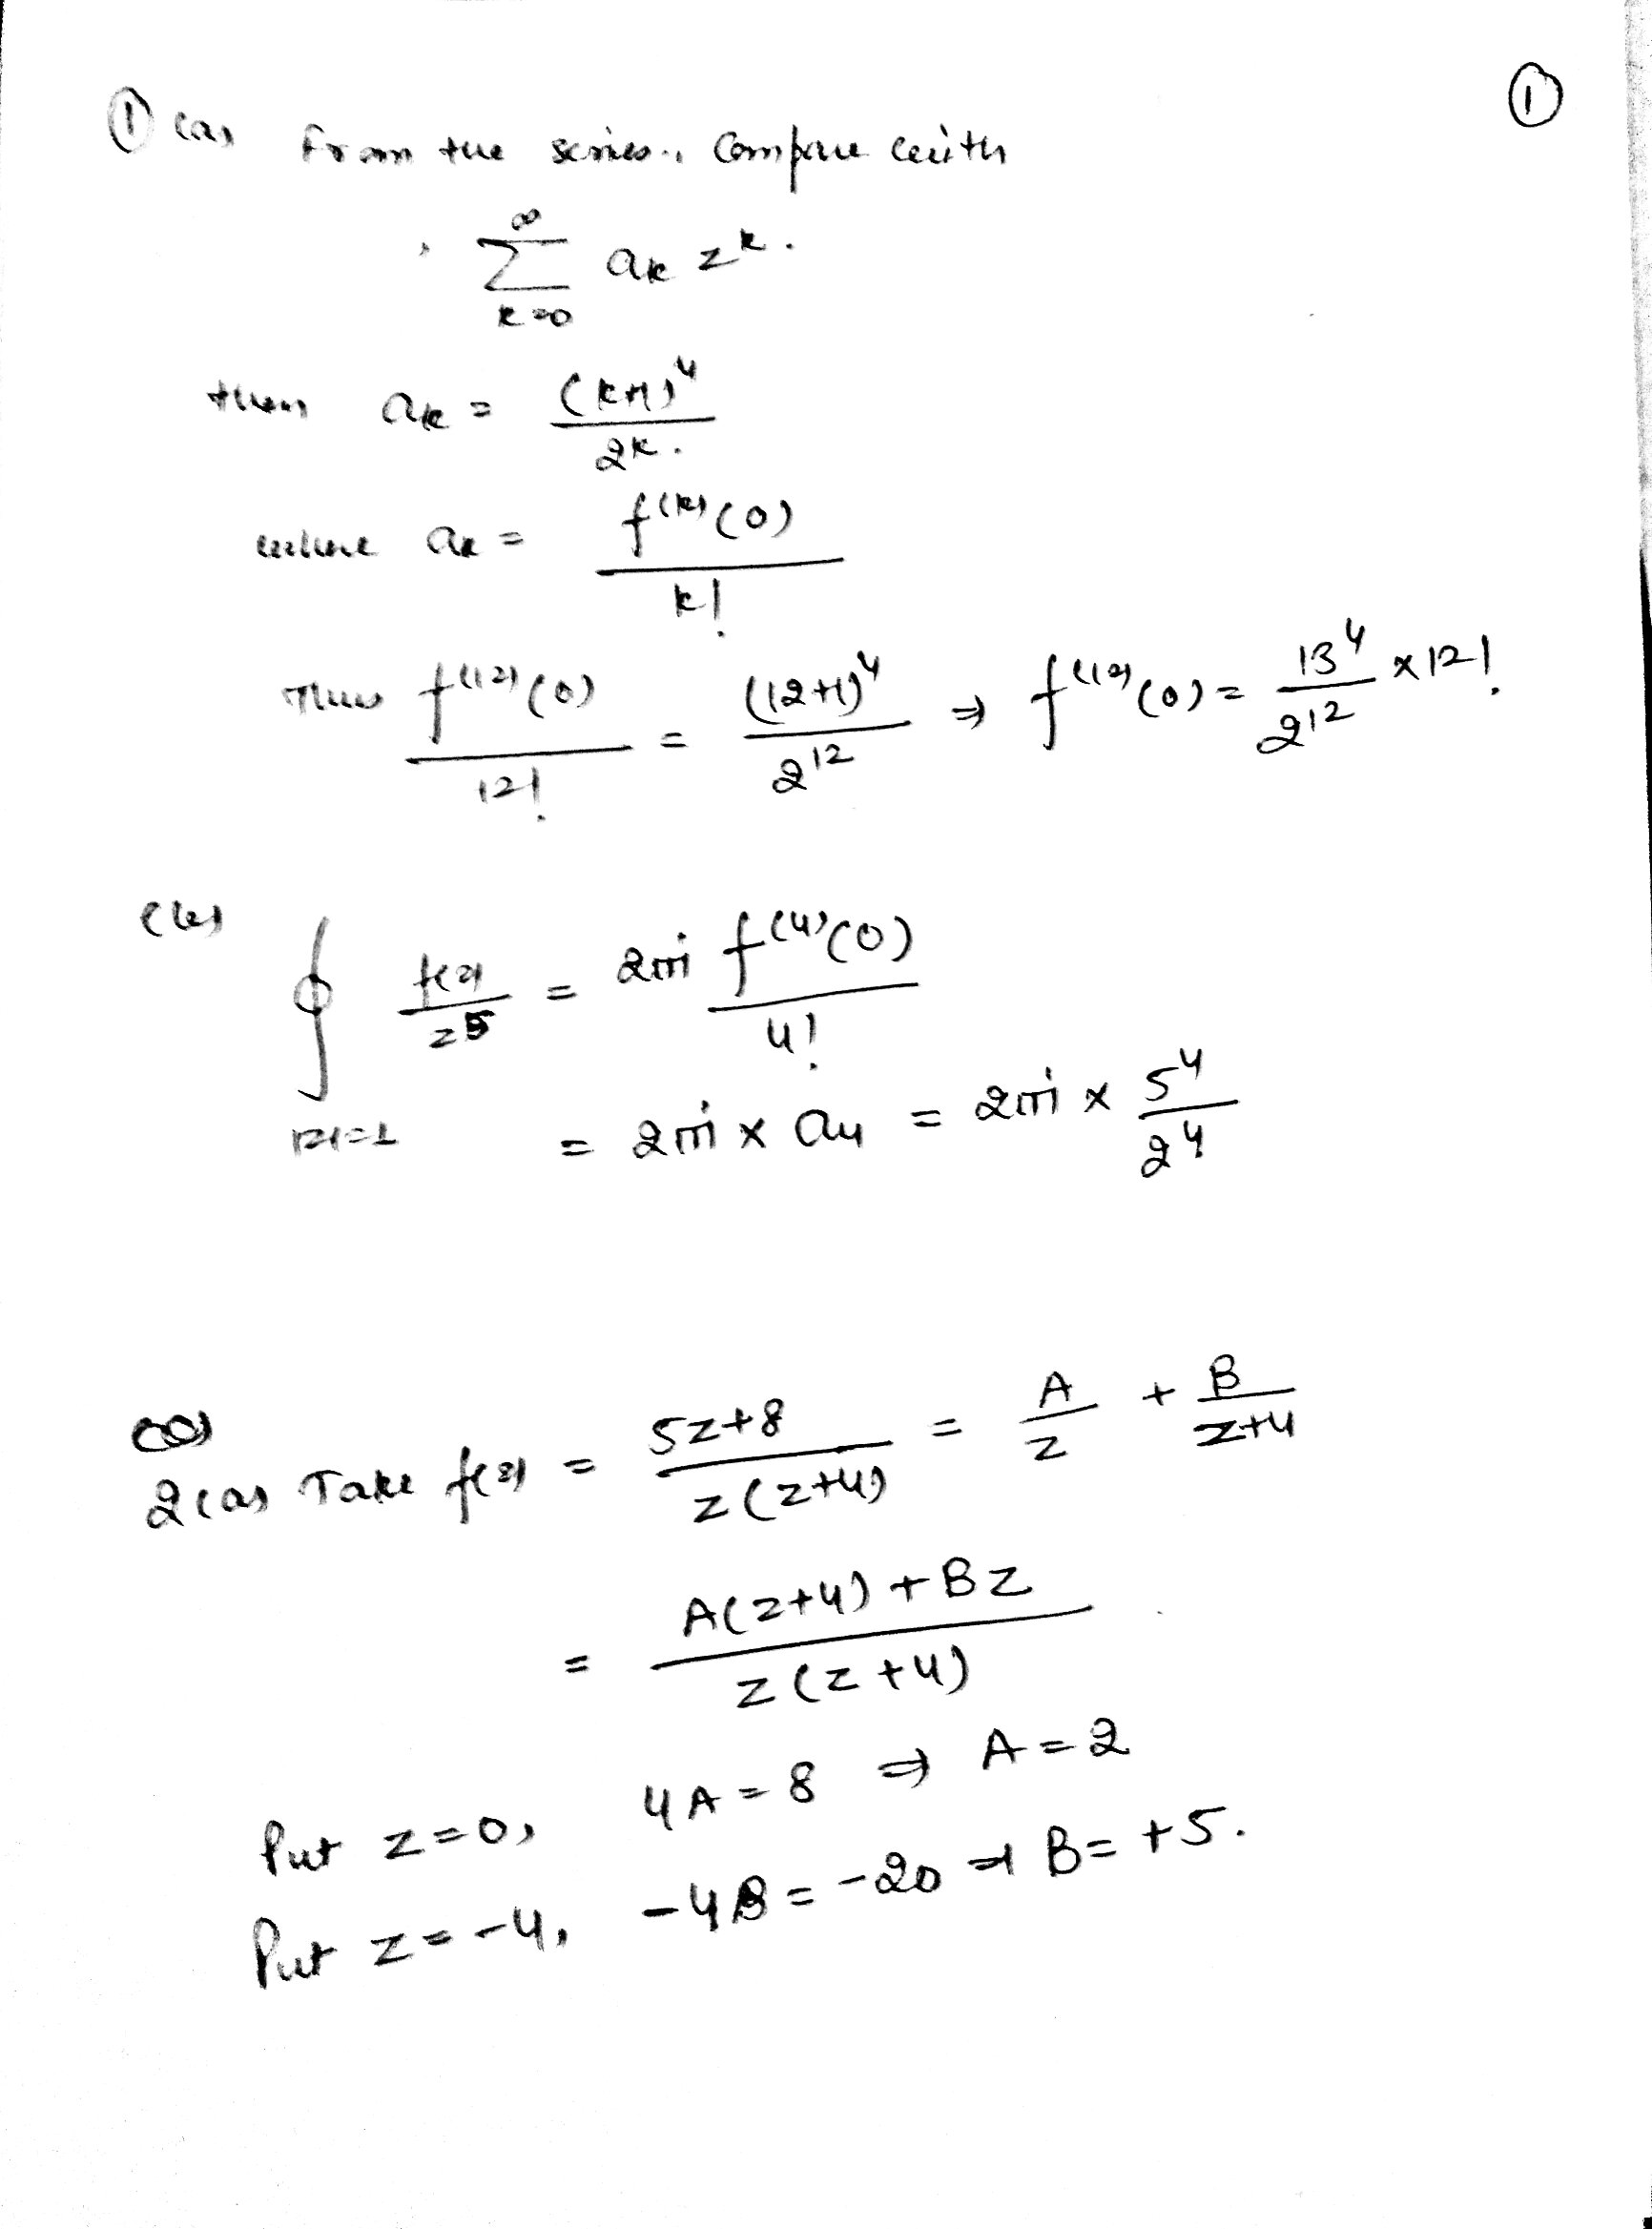 ①
① (a) From the series, Compare with
∞ Σ k=0 a_k z^k.
then a_k = (k+1)^4 / 2^k.
where a_k = f^(k)(0) / k!
Thus f^(12)(0) / 12! = (12+1)^4 / 2^12 ⇒ f^(12)(0) = 13^4 / 2^12 × 12!
(b) ∮ |z|=1 f(z) / z^5 = 2πi f^(4)(0) / 4!
= 2πi × a_4 = 2πi × 5^4 / 2^4
2(a) Take f(z) = 5z+8 / z(z+4) = A / z + B / z+4
= A(z+4) + Bz / z(z+4)
Put z=0, 4A = 8 ⇒ A = 2
Put z=-4, -4B = -20 ⇒ B = +5.